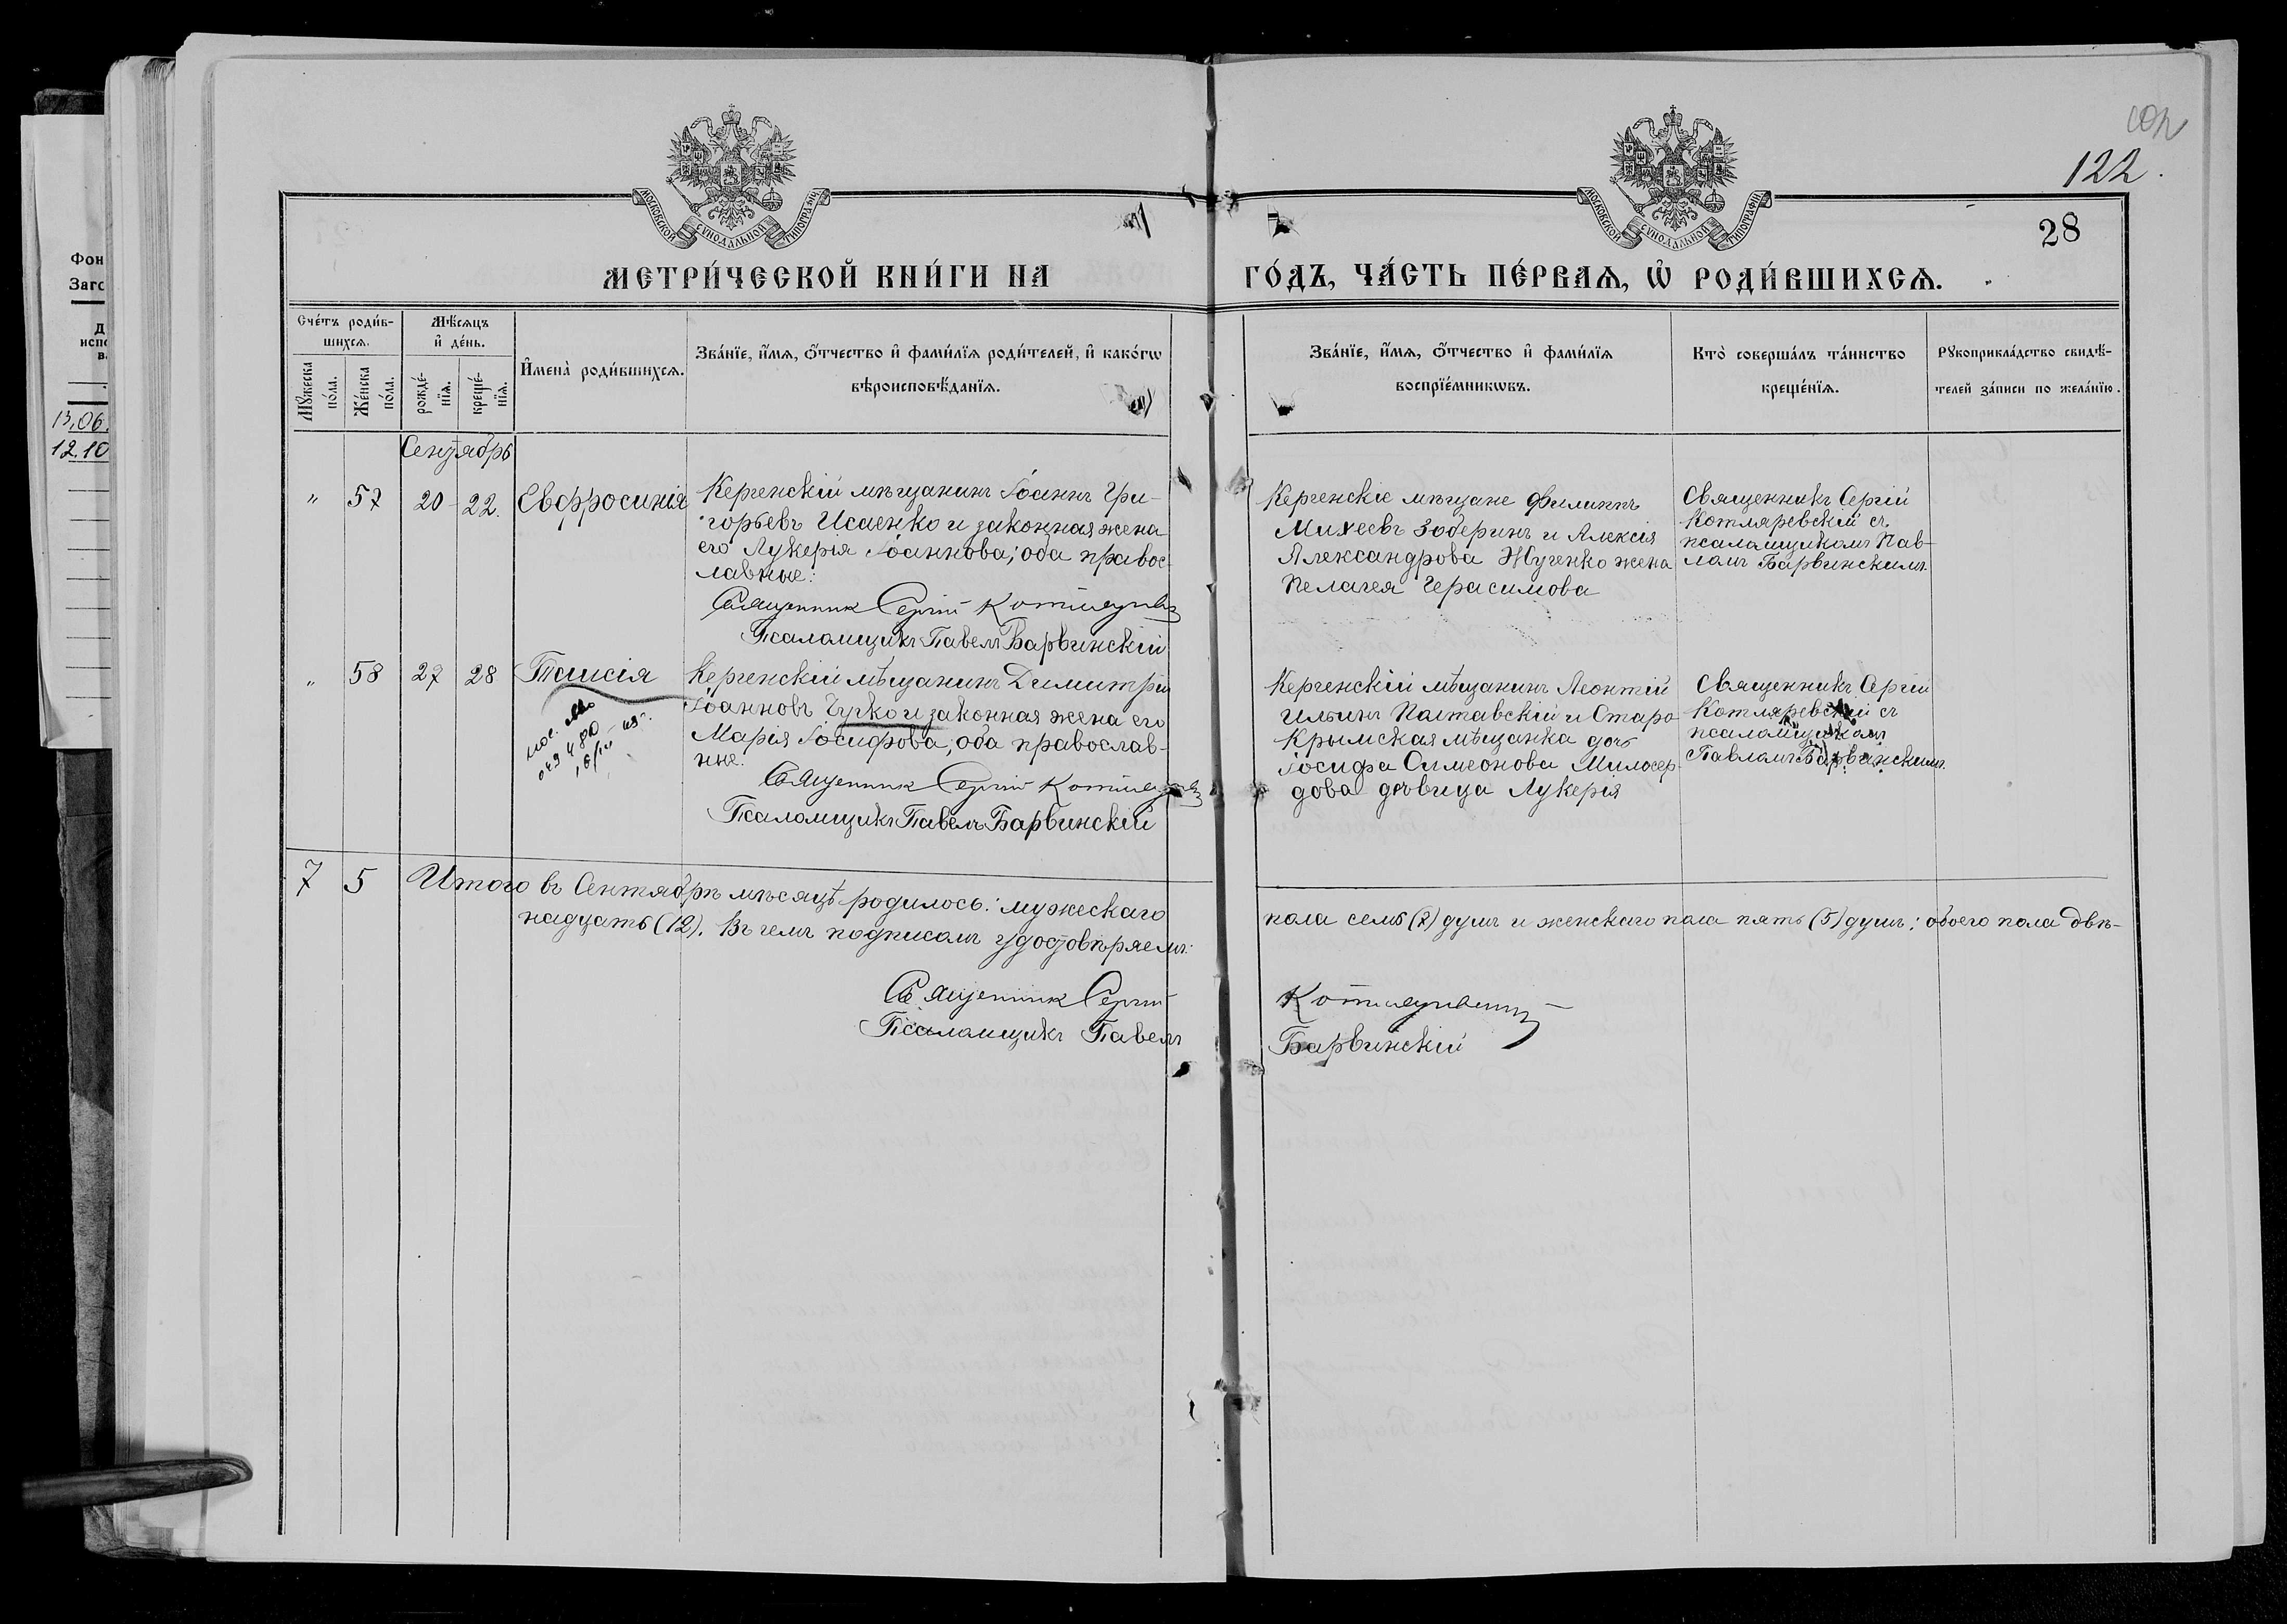 сор
122.
28
МОСКОВСКОЙ СУНОДАЛЬНОЙ ТИПОГРАФІИ
МОСКОВСКОЙ СУНОДАЛЬНОЙ ТИПОГРАФІИ
МЕТРИ́ЧЕСКОЙ КНИ́ГИ НА ГО́ДЪ, ЧА́СТЬ ПЕ́РВАѦ, Ѡ҆ РОДИ́ВШИХСѦ.
Сче́тъ роди́в-
шихсѧ.
Мѣ́сѧцъ
и҆ де́нь.
Мꙋ́жеска
по́ла.
Же́нска
по́ла.
рожде́-
нїѧ.
креще́-
нїѧ.
И҆мена̀ роди́вшихсѧ.
Зва́нїе, и҆́мѧ, ѻ҆́тчество и҆ фами́лїѧ роди́телей, и҆ како́гѡ
вѣроисповѣ́данїѧ.
Зва́нїе, и҆́мѧ, ѻ҆́тчество и҆ фами́лїѧ
воспрїе́мникѡвъ.
Кто̀ соверша́лъ та́инство
креще́нїѧ.
Рꙋкоприкла́дство свидѣ́-
телей за́писи по жела́нїю.
Фон
Заго
Д
испо
в.
13.06.
12.10
Сентябрь
" 57 20 22. Евфросинія
Керченскій мѣщанинъ Іоаннъ Гри-
горьевъ Исаенко и законная жена
его Лукерія Іоаннова; оба правос-
лавные.
Священник Сергій Котляревскій
Псаломщикъ Павелъ Барвинскій
Керченскіе мѣщане Филиппъ
Михеевъ Зодеринъ и Алексія
Александрова Жученко жена
Пелагея Герасимова
Священникъ Сергій
Котляревскій съ
псаломщикомъ Пав-
ломъ Барвинскимъ.
" 58 27 28 Таисія
Керченскій мѣщанинъ Димитрій
Іоанновъ Гурко и законная жена его
Марія Іосифова, оба православ-
ные.
Священник Сергій Котляревскій
Псаломщикъ Павелъ Барвинскій
Керченскій мѣщанинъ Леонтій
Ильинъ Полтавскій и Старо
Крымская мѣщанка дочь
Іосифа Симеонова Милосер-
дова дѣвица Лукерія
Священникъ Сергій
Котляревскій съ
псаломщикомъ
Павломъ Барвинскимъ.
7 5 Итого въ Сентябрѣ мѣсяцѣ родилось: мужескаго пола семь (7) душъ и женскаго пола пять (5) душъ; обоего пола двѣ-
надцать (12). Въ чемъ подписомъ удостовѣряемъ:
Священник Сергій Котляревскій
Псаломщикъ Павелъ Барвинскій